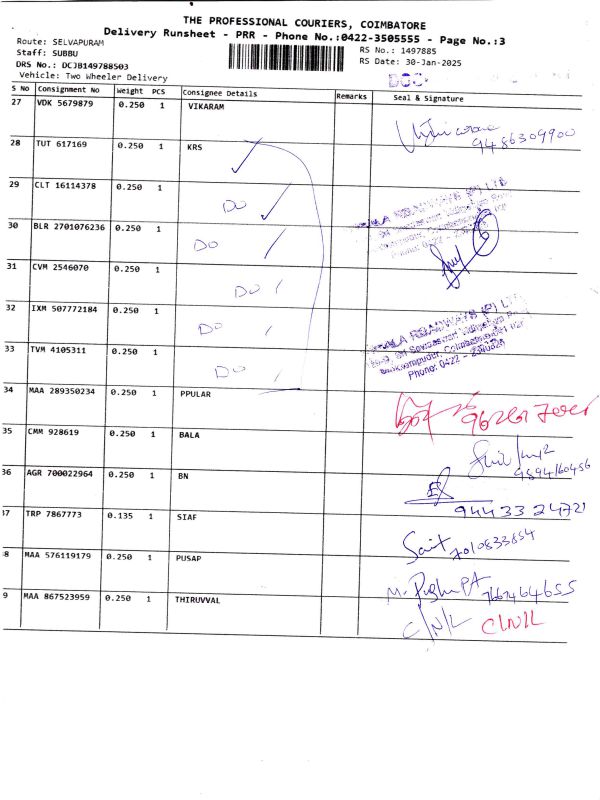 THE PROFESSIONAL COURIERS, COIMBATORE
Delivery Runsheet - PRR - Phone No.:0422-3505555 - Page No.:3
Route: SELVAPURAM
Staff: SUBBU
RS No.: 1497885
DRS No.: DCJB149788503
RS Date: 30-Jan-2025
Vehicle: Two Wheeler Delivery
S No Consignment No Weight PCS Consignee Details Remarks Seal & Signature
27 VDK 5679879 0.250 1 VIKARAM
9486309900
28 TUT 617169 0.250 1 KRS
29 CLT 16114378 0.250 1 DO
30 BLR 2701076236 0.250 1 DO
31 CVM 2546070 0.250 1 DO
32 IXM 507772184 0.250 1 DO
33 TVM 4105311 0.250 1 DO
Phone: 0422 -
34 MAA 289350234 0.250 1 PPULAR
35 CMM 928619 0.250 1 BALA
9894160456
36 AGR 700022964 0.250 1 BN
94433 24721
37 TRP 7867773 0.135 1 SIAF
7010833654
8 MAA 576119179 0.250 1 PUSAP
7667464655
9 MAA 867523959 0.250 1 THIRUVVAL
C/N/L C/N/L